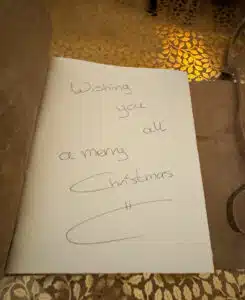 Wishing
you
all
a merry
Christmas